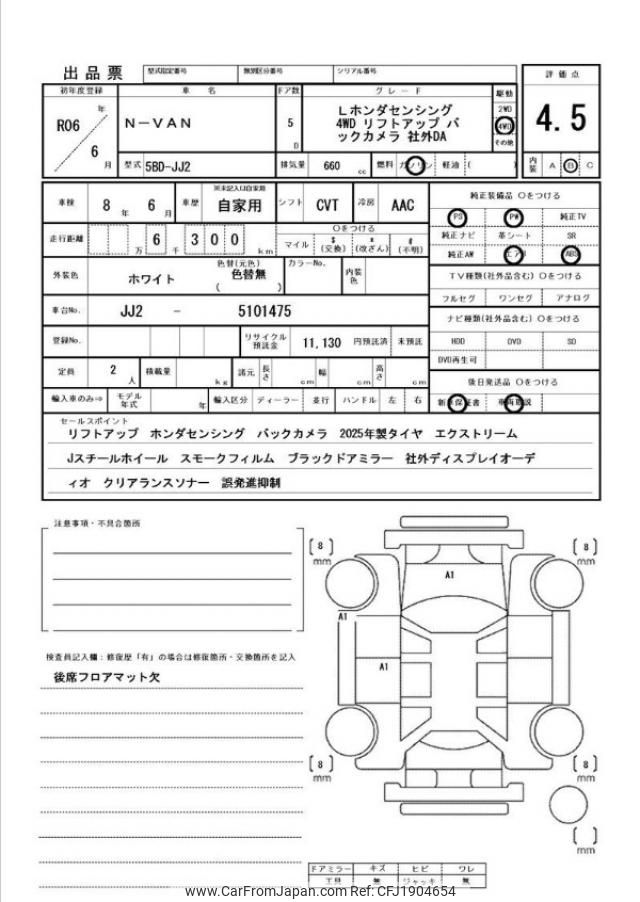 出品票
型式指定番号 類別区分番号 シリアル番号
評価点
4.5
初年度登録 車名 ドア数 グレード 駆動
R06 年 6 月
N-VAN
5 D
Lホンダセンシング
4WD リフトアップ バ
ックカメラ 社外DA
2WD
4WD
その他
型式 5BD-JJ2 排気量 660 cc 燃料 ガソリン 軽油 ( )
内装 A B C
車検 8 年 6 月 車歴 自家用 シフト CVT 冷房 AAC
走行距離 万 6 千 3 0 0 km
○をつける
マイル $(交換) *(改ざん) #(不明)
外装色 ホワイト 色替(元色) 色替無 ( ) カラーNo. 内装色
車台No. JJ2 - 5101475
登録No. リサイクル預託金 11,130 円預託済 未預託
定員 2 人 積載量 kg 諸元 長さ cm 幅 cm 高さ cm
輸入車のみ⇒ モデル年式 年 輸入区分 ディーラー 並行 ハンドル 左 右
純正装備品 ○をつける
PS PW 純正TV
純正ナビ 革シート SR
純正AW エアB ABS
TV種類(社外品含む) ○をつける
フルセグ ワンセグ アナログ
ナビ種類(社外品含む) ○をつける
HDD DVD SD
DVD再生可
後日発送品 ○をつける
新車保証書 車両取説
セールスポイント
リフトアップ ホンダセンシング バックカメラ 2025年製タイヤ エクストリーム
Jスチールホイール スモークフィルム ブラックドアミラー 社外ディスプレイオーデ
ィオ クリアランスソナー 誤発進抑制
注意事項・不具合箇所
検査員記入欄:修復歴「有」の場合は修復箇所・交換箇所を記入
後席フロアマット欠
[8] mm
[8] mm
A1
A1
A1
[8] mm
[8] mm
[ ] mm
ドアミラー キズ ヒビ ワレ
工具 無 ジャッキ 無
www.CarFromJapan.com Ref: CFJ1904654